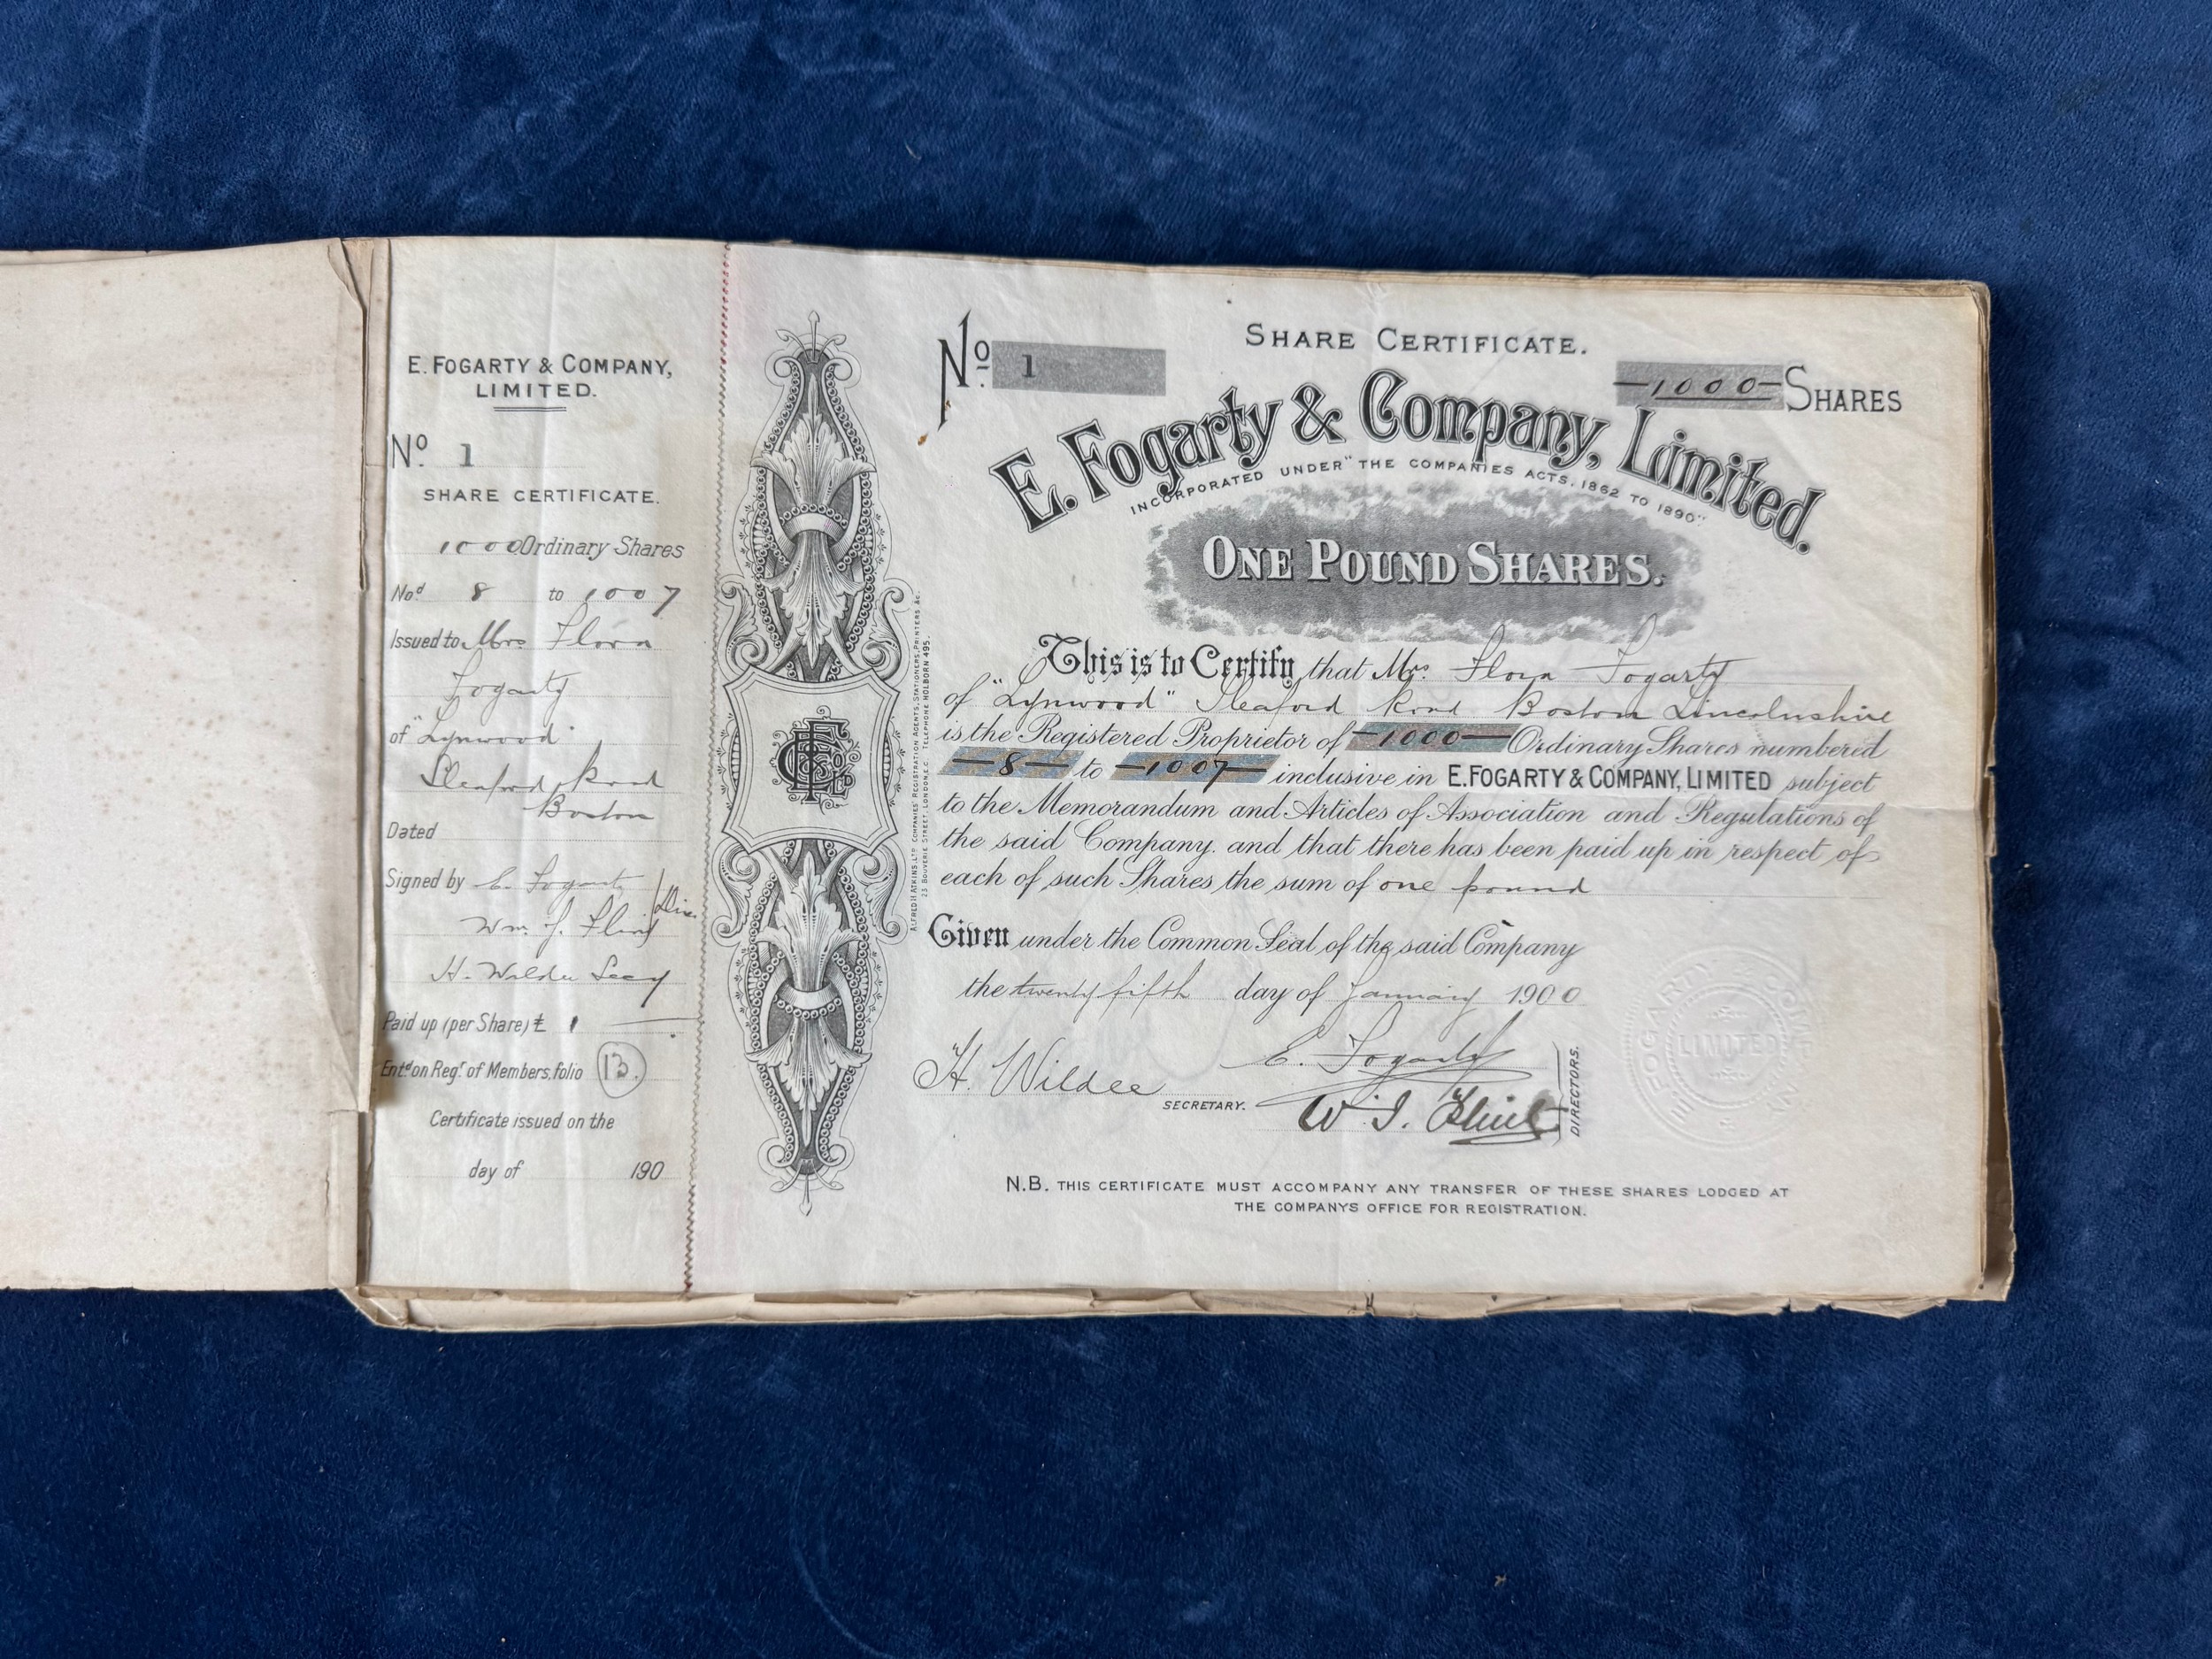 E. FOGARTY & COMPANY,
LIMITED.
No. 1
SHARE CERTIFICATE.
1000 Ordinary Shares
Nod 8 to 1007
Issued to Mrs Flora
Fogarty
of "Lynwood"
Sleaford Road
Boston
Dated
Signed by E. Fogarty
Wm. J. Flint
Dir.
H. Wildee Secy
Paid up (per Share) £ 1
Entd on Regr of Members, folio 13.
Certificate issued on the
day of 190
ALFRED H ATKINS, LTD COMPANIES' REGISTRATION AGENTS, STATIONERS, PRINTERS &c.
23 BOUVERIE STREET, LONDON, E.C. TELEPHONE HOLBORN 495.
No. 1
SHARE CERTIFICATE.
-1000- SHARES
E. Fogarty & Company, Limited.
INCORPORATED UNDER "THE COMPANIES ACTS, 1862 TO 1890"
ONE POUND SHARES.
This is to Certify that Mrs. Flora Fogarty
of "Lynwood" Sleaford Road Boston Lincolnshire
is the Registered Proprietor of -1000- Ordinary Shares numbered
-8- to -1007- inclusive in E. FOGARTY & COMPANY, LIMITED subject
to the Memorandum and Articles of Association and Regulations of
the said Company. and that there has been paid up in respect of
each of such Shares the sum of one pound
Given under the Common Seal of the said Company
the twenty fifth day of January 1900
H. Wildee
SECRETARY.
E. Fogarty
W. J. Flint
DIRECTORS.
LIMITED
N.B. THIS CERTIFICATE MUST ACCOMPANY ANY TRANSFER OF THESE SHARES LODGED AT
THE COMPANYS OFFICE FOR REGISTRATION.